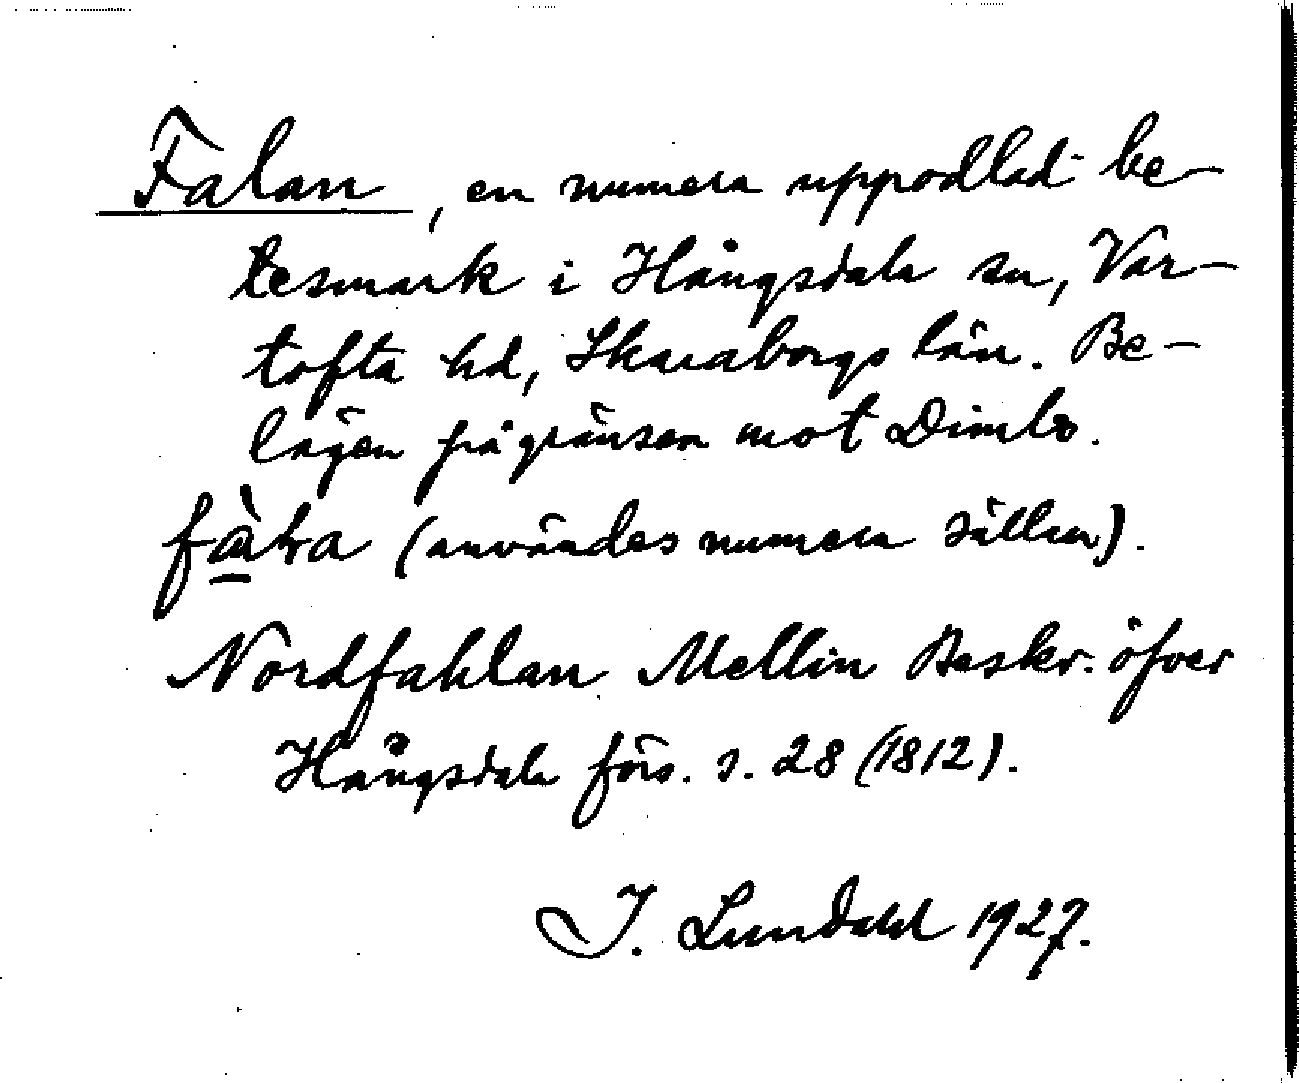 Falan, en numera uppodlad be-
tesmark i Hångsdala sn, Var-
tofta hd, Skaraborgs län. Be-
lägen på gränsen mot Dimbo.
fàɫa (användes numera sällan).
Nordfahlan Mellin Beskr. öfver
Hångsdala förs. s. 28 (1812).
I. Lundahl 1927.